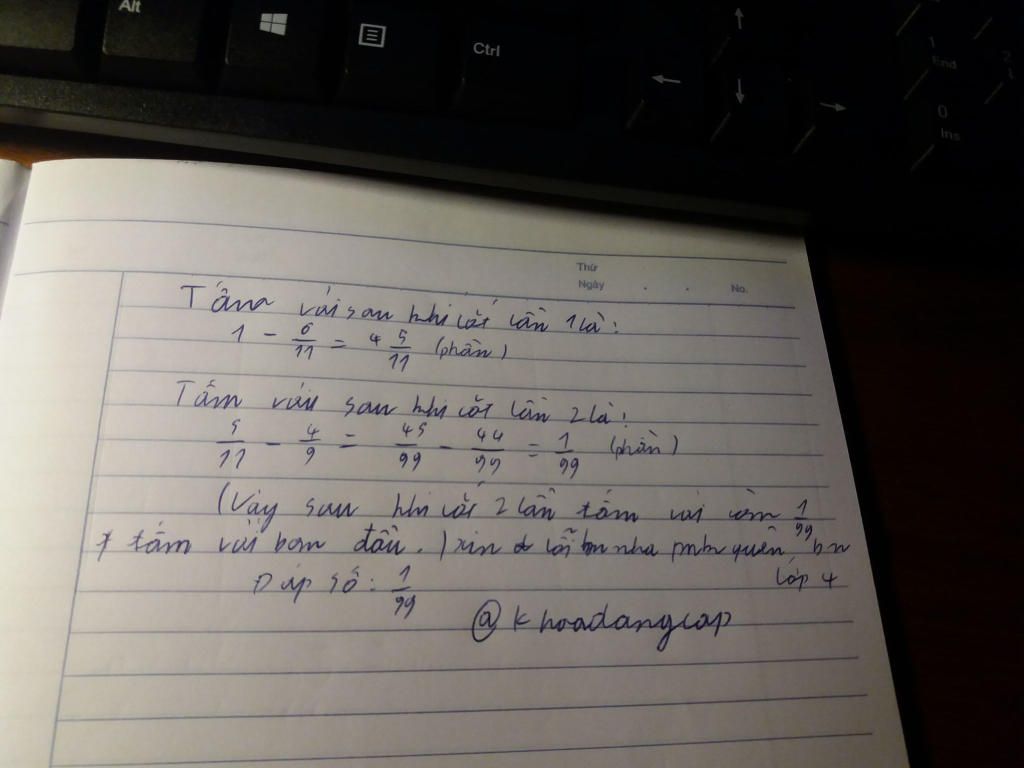 Alt
Ctrl
1
End
2
0
Ins
Thứ
Ngày . . No.
Tấm vải sau khi cắt lần 1 là:
1 - 6/11 = 5/11 (phần)
Tấm vải sau khi cắt lần 2 là:
5/11 - 4/9 = 45/99 - 44/99 = 1/99 (phần)
(Vậy sau khi cắt 2 lần tấm vải còn 1/99
tấm vải ban đầu.) xin lỗi nha mk quên bn
lớp 4
Đáp số: 1/99
@khoadangcap